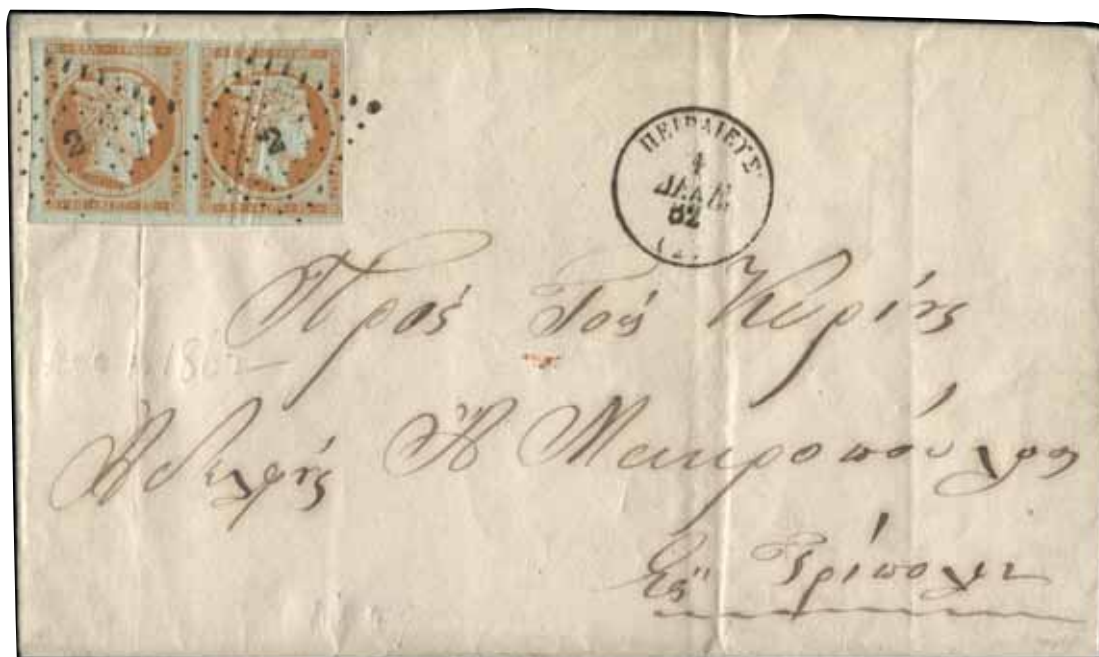 2 2
ΠΕΙΡΑΙΕΥΣ
4
62
Πρὸς Τοὺς Κυρίους
Ἀδελφοὺς Μακροπούλους
Εἰς Τρίπολιν